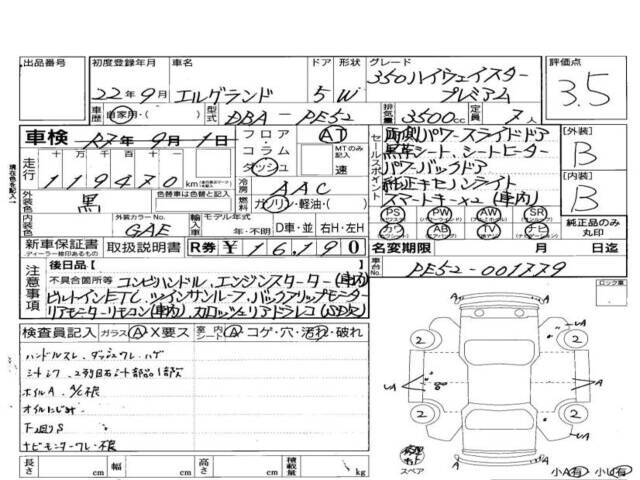 出品番号 初度登録年月 車名 ドア 形状 グレード 評価点
22年9月 エルグランド 5 W 350ハイウェイスター
プレミアム
3.5
車歴 自家用・( ) 型式 DBA-PE52 排気量 3500cc 定員 7人
車検 R7年9月1日 フロア AT
コラム MTのみ記入
ダッシュ 速
セールスポイント
両側パワースライドドア
黒革シート、シートヒーター
パワーバックドア
純正キセノンライト
スマートキー×2(車内)
[外装]
B
[内装]
B
走行 十万 万 千 百 十 一
119470 km
冷房 AAC
外装色 黒 色替車は色替と記入 燃料 ガソリン・軽油・( )
内装色 外装カラーNo. GAE 輸入車 モデル年式 年・不明 D車・並 右H・左H
PS PW AW SR
カワ AB TV ナビ
純正品のみ丸印
新車保証書 取扱説明書 R券 ¥16,190 名変期限 月 日迄
ディーラー捺印あるもの
車台No. PE52-001779
ロック車
注意事項
後日品[ ]
不具合箇所等 コンビハンドル、エンジンスターター(車内)
ビルトインETC、ツインサンルーフ、バックフリップモニター
検査員記入 ガラス A X要ス 室内シート A コゲ・穴・汚れ・破れ
ハンドルスレ、ダッシュワレ・ハゲ
ホイルA
オイルにじみ
下廻りS
ナビモニターワレ・
長さ cm 幅 cm 高さ cm 積載量 kg
UA
A
2 2
UA A A
2 2
UA
A
スペア 小A有 小U有
現在色を記入